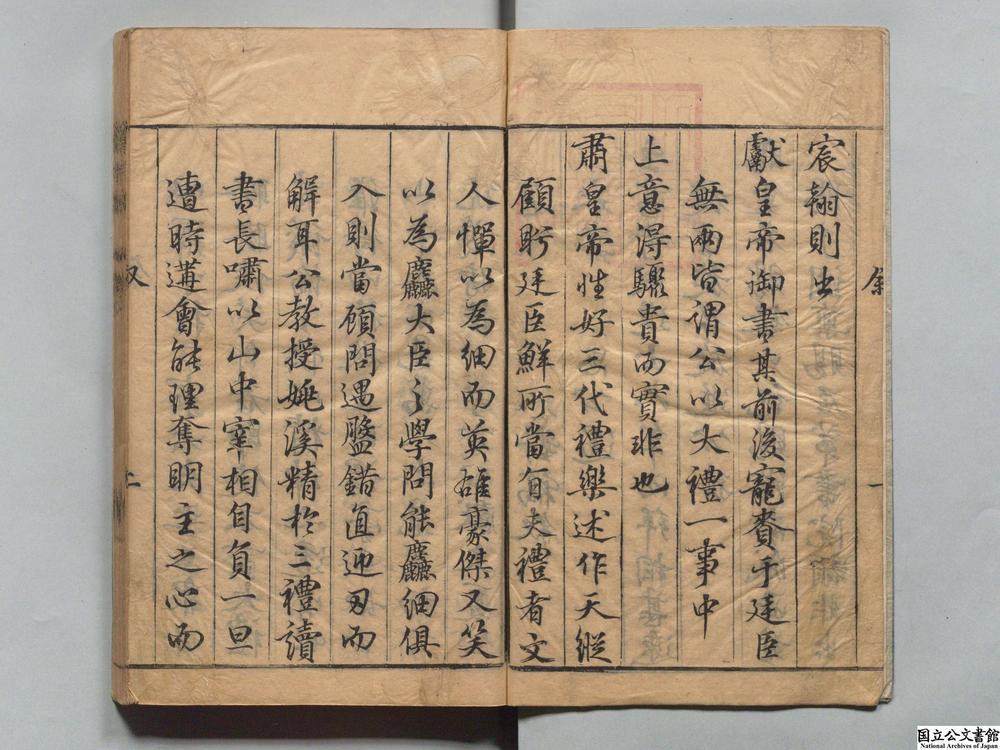 宸翰則出
獻皇帝御書其前後寵賚于廷臣
無兩皆謂公以大禮一事中
上意得驟貴而實非也
肅皇帝性好三代禮樂述作天縱
顧盻廷臣鮮所當旨夫禮者文
人憚以為細而英雄豪傑又笑
以為麤大臣之學問能麤細俱
入則當顧問遇盤錯直迎刃而
解耳公教授姚溪精於三禮讀
書長嘯以山中宰相自負一旦
遭時遘會能理奪明主之心而
叙
上
一
国立公文書館
National Archives of Japan